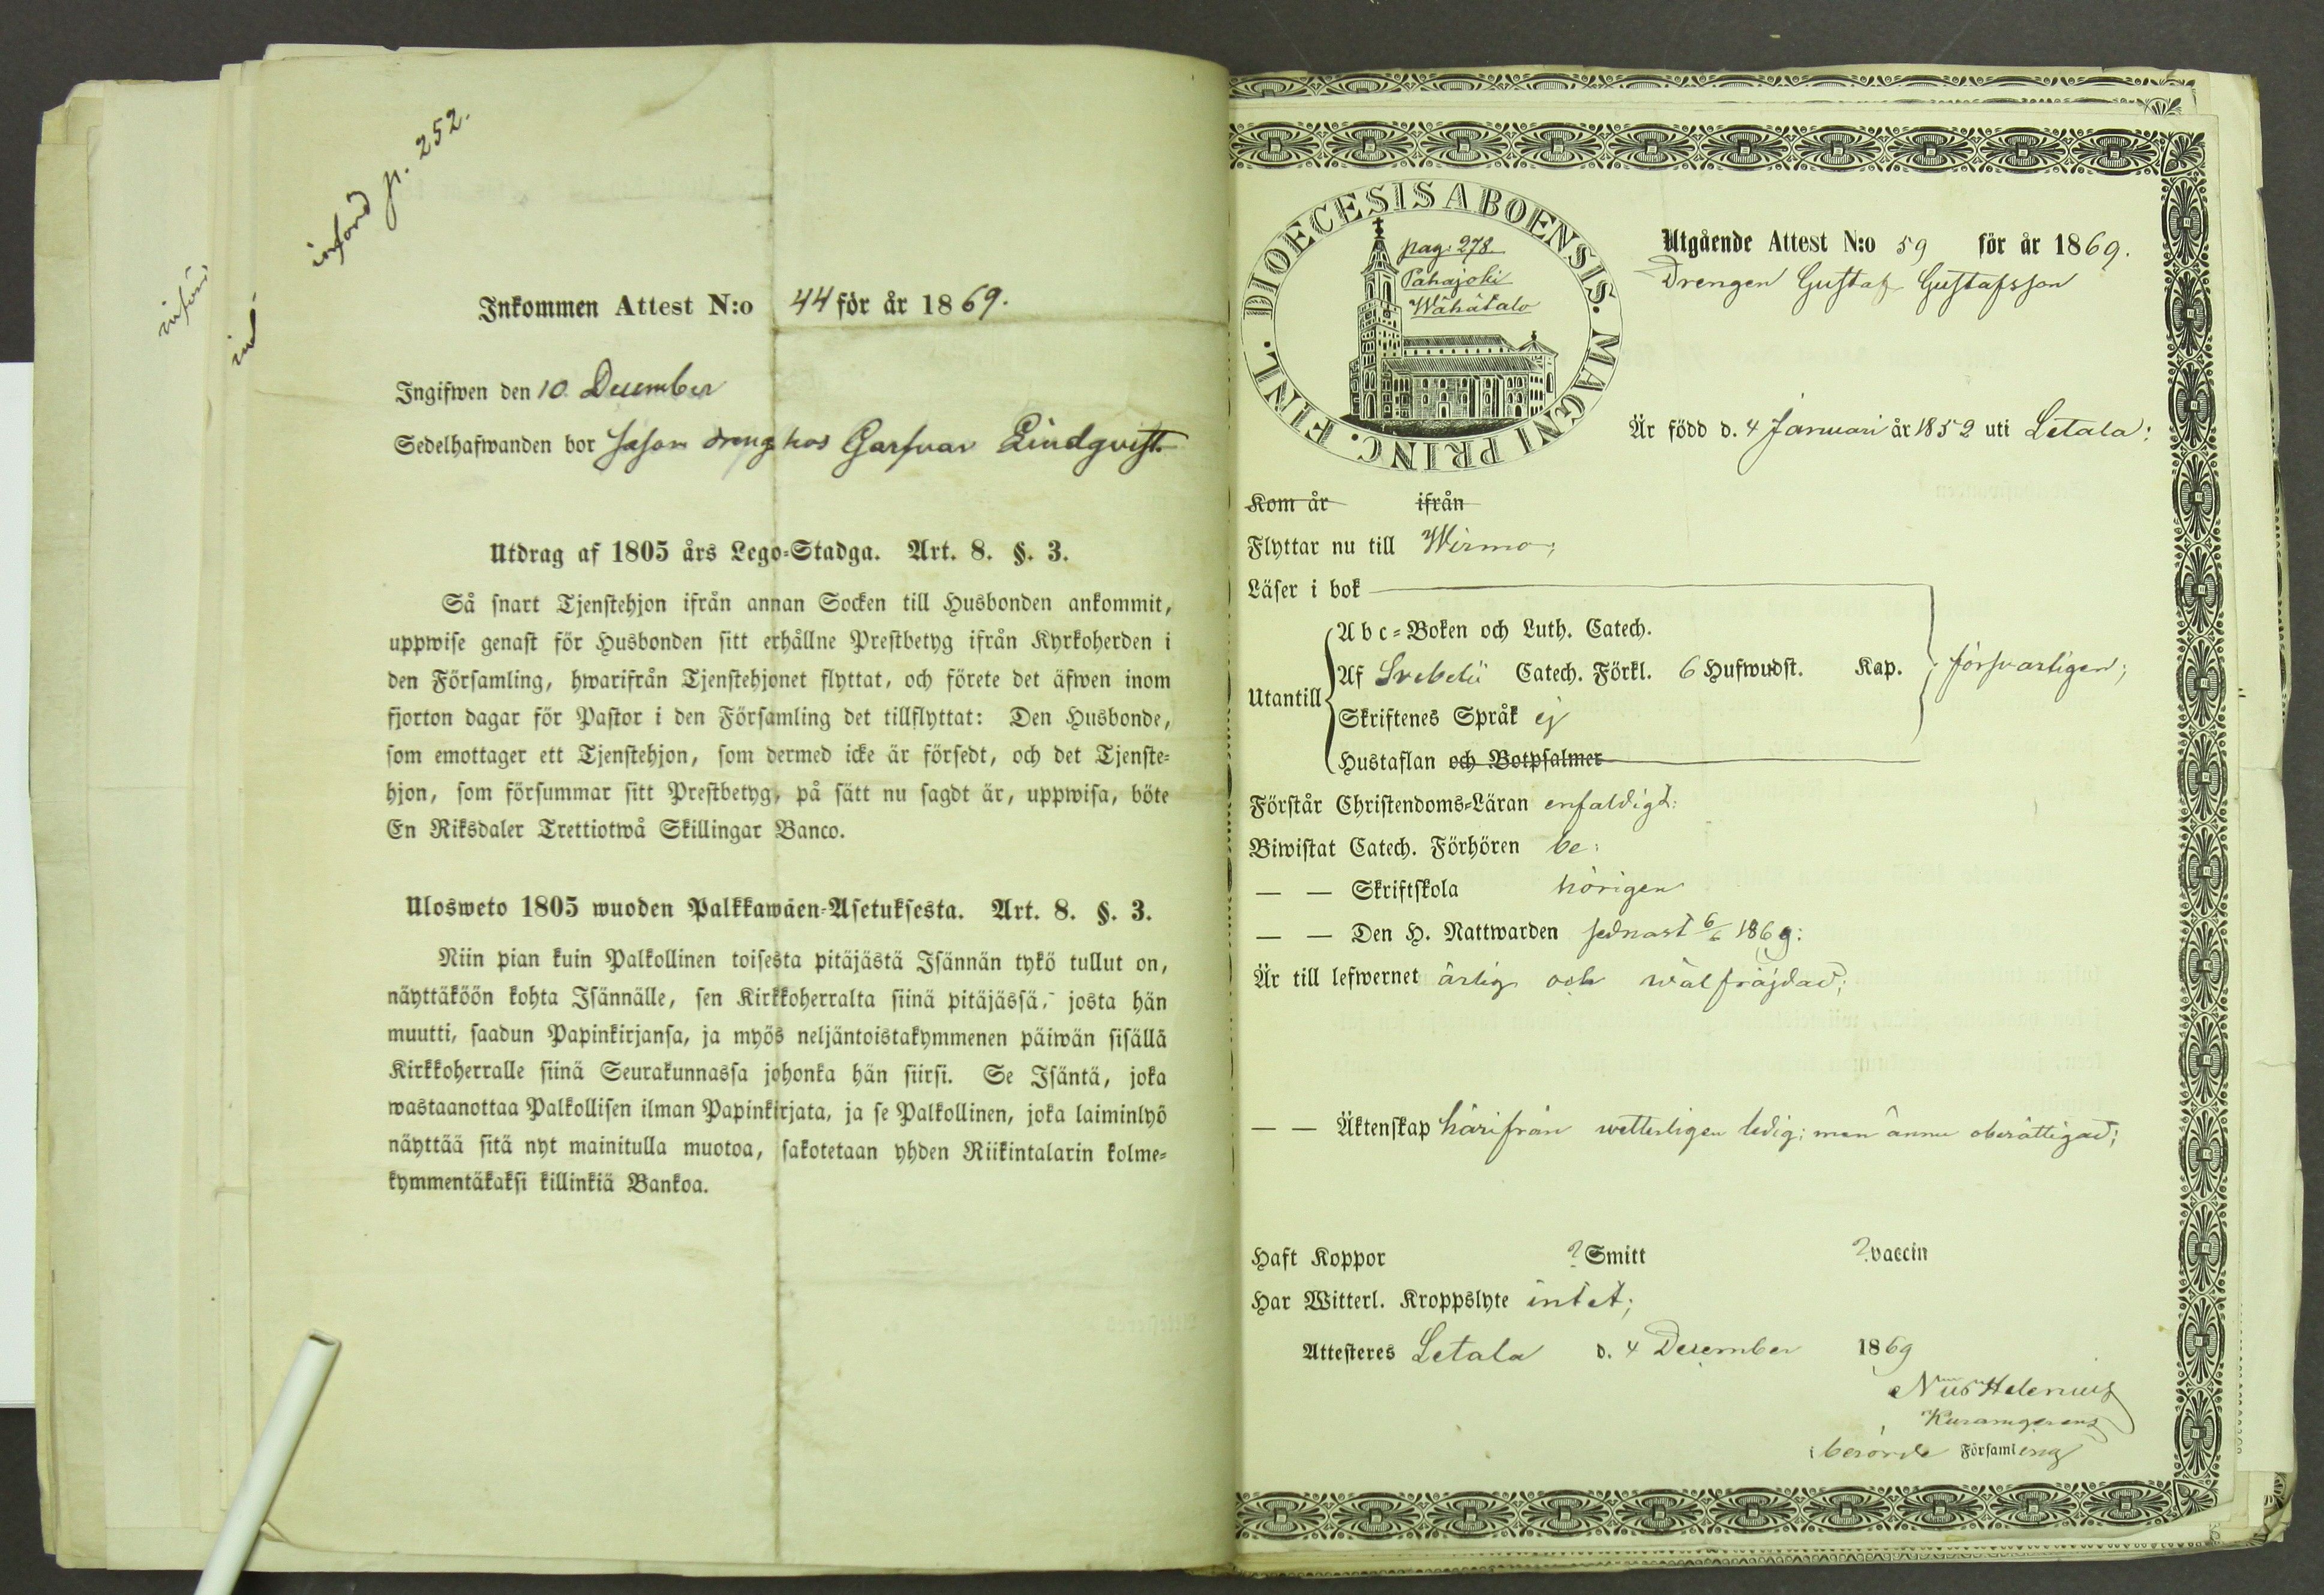 införd p. 252.
införd
inf
Inkommen Attest N:o 44 för år 1869.
Ingifwen den 10 December
Sedelhafwanden bor såsom dreng hos Garfvar Lindqvist.
Utdrag af 1805 års Lego-Stadga. Art. 8. §. 3.
Så snart Tjenstehjon ifrån annan Socken till Husbonden ankommit,
uppwise genast för Husbonden sitt erhållne Prestbetyg ifrån Kyrkoherden i
den Församling, hwarifrån Tjenstehjonet flyttat, och förete det äfwen inom
fjorton dagar för Pastor i den Församling det tillflyttat: Den Husbonde,
som emottager ett Tjenstehjon, som dermed icke är försedt, och det Tjenste-
hjon, som försummar sitt Prestbetyg, på sätt nu sagdt är, uppwisa, böte
En Riksdaler Trettiotwå Skillingar Banco.
Ulosweto 1805 wuoden Palkkawäen-Asetuksesta. Art. 8. §. 3.
Niin pian kuin Palkollinen toisesta pitäjästä Isännän tykö tullut on,
näyttäköön kohta Isännälle, sen Kirkkoherralta siinä pitäjässä, josta hän
muutti, saadun Papinkirjansa, ja myös neljäntoistakymmenen päiwän sisällä
Kirkkoherralle siinä Seurakunnassa johonka hän siirsi. Se Isäntä, joka
wastaanottaa Palkollisen ilman Papinkirjata, ja se Palkollinen, joka laiminlyö
näyttää sitä nyt mainitulla muotoa, sakotetaan yhden Riikintalarin kolme-
kymmentäkaksi killinkiä Bankoa.
FINL. DIOECESIS ABOENSIS. MAGNI PRINC.
pag. 278
Pahajoki
Wähätalo
Utgående Attest N:o 59 för år 1869.
Drengen Gustaf Gustafsson
Är född d. 4 Januari år 1852 uti Letala:
Kom år ifrån
Flyttar nu till Wirmo;
Läser i bok
Utantill
A b c-Boken och Luth. Catech.
Af Svebelii Catech. Förkl. 6 Hufwudst. Kap.
försvarligen;
Skriftenes Språk ej
Hustaflan och Botpsalmer
Förstår Christendoms-Läran enfaldigt:
Biwistat Catech. Förhören be:
— — Skriftskola hörigen
— — Den H. Nattwarden sednast 6/6 1869:
Är till lefwernet ärlig och wälfräjdad;
— — Äktenskap härifrån wetterligen ledig; men ännu oberättigad;
Haft Koppor ? Smitt ? vaccin
Har Witterl. Kroppslyte intet;
Attesteres Letala d. 4 December 1869
Helenius
i berörde Församling